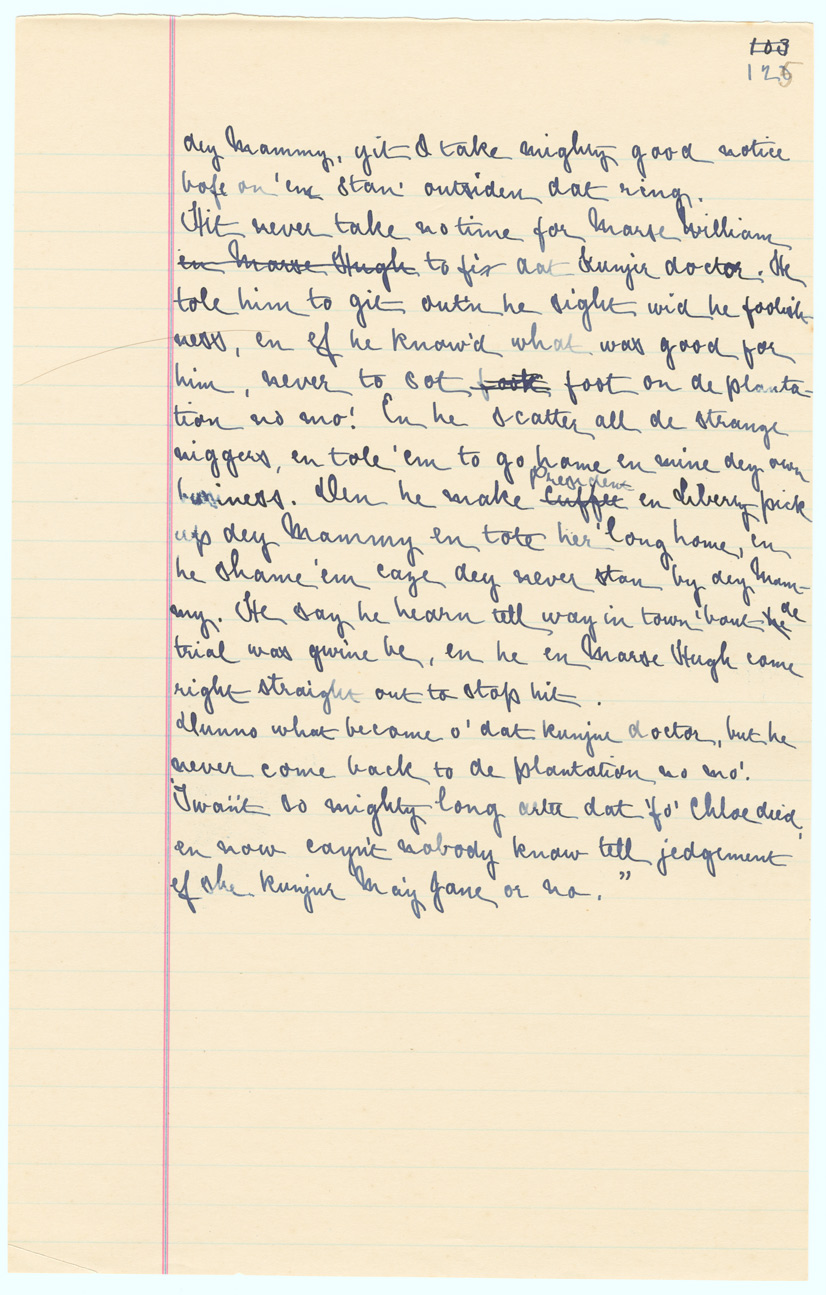 103
125
dey Mammy, yit I take mighty good notice
bofe on 'em stan' outsiden dat ring.
Hit never take no time for Marse William
en Marse Hugh to fix dat kunjir doctor. He
tole him to git out'n he sight wid he foolish-
ness, en ef he know'd what was good for
him, never to sot foot foot on de planta-
tion no mo! En he scatter all de strange
niggers, en tole 'em to go home en mine dey own
business. Den he make Cuffee President en Liberty pick
up dey Mammy en tote her 'long home, en
he shame 'em caze dey never stan by dey Mam-
my. He say he hearn tell way in town 'bout he de
trial was gwine be, en he en Marse Hugh come
right straight out to stop hit.
Dunno what become o' dat kunjur doctor, but he
never come back to de plantation no mo'.
'Twa'n't so mighty long arter dat 'fo' Chloe died,
en now cayn't nobody know tell jedgement
ef she kunjur Ma'y Jane or no."